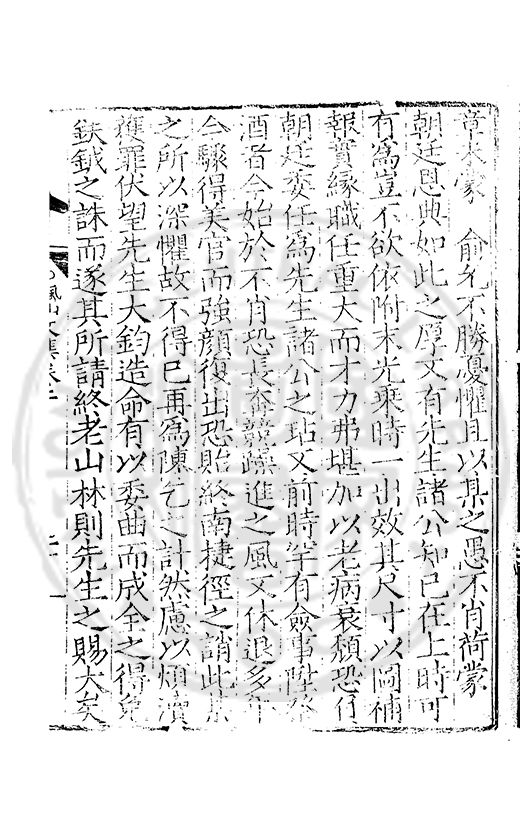 章未蒙　俞允不勝憂懼且以某之愚不肖荷蒙
朝廷恩典如此之厚又有先生諸公知已在上時可
有爲豈不欲依附末光乘時一出效其尺寸以圖補
報實緣職任重大而才力弗堪加以老病衰頹恐負
朝廷委任爲先生諸公之玷又前時罕有僉事陞祭
酒者今始於不肖恐長奔競躁進之風又休退多年
今驟得美官而強顏復出恐貽終南捷徑之誚此某
之所以深懼故不得已再爲陳乞之計然慮以煩瀆
獲罪伏望先生大鈞造命有以委曲而成全之得免
鈇鉞之誅而遂其所請終老山林則先生之賜大矣
楓山文集卷二